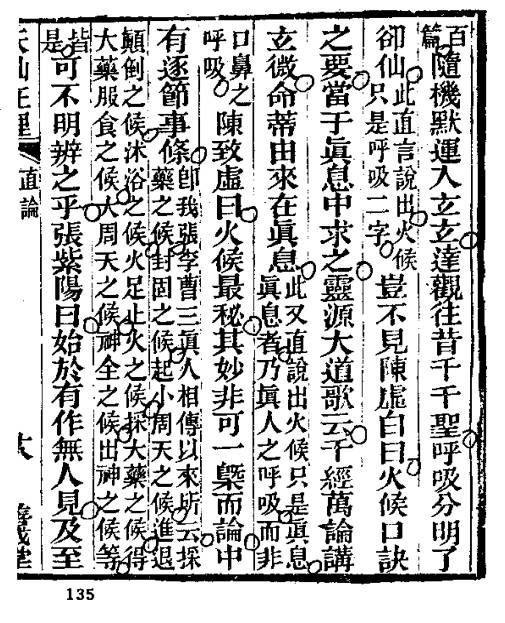 百篇隨機默運入玄玄達觀往昔千千聖呼吸分明了
卻仙此直言說出火候
只是呼吸二字豈不見陳虛白曰火候口訣
之要當于眞息中求之靈源大道歌云千經萬論講
玄微命蒂由來在眞息此又直說出火候只是眞息
眞息者乃眞人之呼吸而非
口鼻之
呼吸陳致虛曰火候最秘其妙非可一槩而論中
有逐節事條卽我張李曹三眞人相傳以來所云採
藥之候封固之候起小周天之候進退
顚倒之候沐浴之候火足止火之候採大藥之候得
大藥服食之候大周天之候神全之候出神之候等
皆是可不明辨之乎張紫陽曰始於有作無人見及至
天仙正理 直論
135